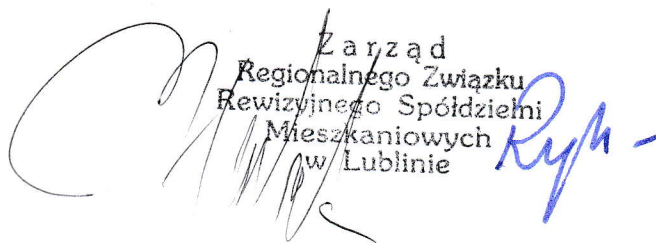 Zarząd
Regionalnego Związku
Rewizyjnego Spółdzielni
Mieszkaniowych
w Lublinie